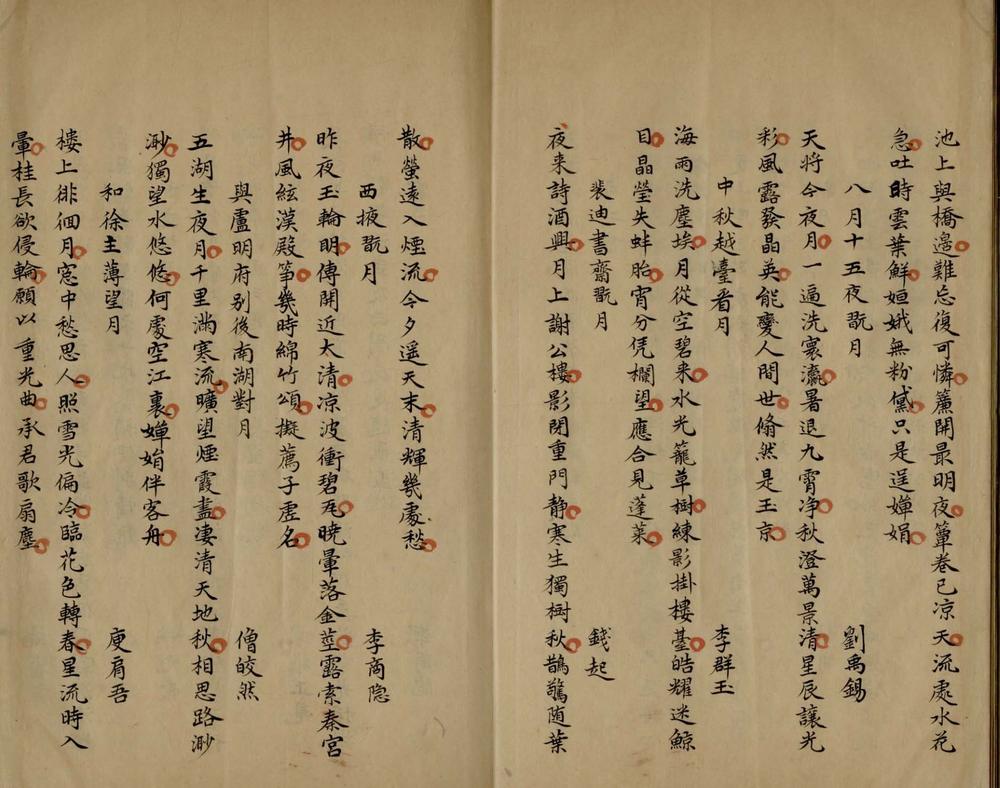 池上與橋邊難忘復可憐簾開最明夜簟卷已凉天流處水花
急吐時雲葉鮮姮娥無粉黛只是逞嬋娟
八月十五夜翫月 劉禹錫
天將今夜月一遍洗寰瀛暑退九霄净秋澄萬景清星辰讓光
彩風露發晶英能變人間世翛然是玉京
中秋越臺看月 李群玉
海雨洗塵埃月從空碧来水光籠草樹練影掛樓臺皓耀迷鯨
目晶瑩失蚌胎宵分凭欄望應合見蓬萊
裴迪書齋翫月 錢起
夜来詩酒興月上謝公樓影閉重門静寒生獨樹秋鵲驚随葉
散螢遠入煙流今夕遥天末清輝幾處愁
西掖翫月 李商隐
昨夜玉輪明傳聞近太清凉波衝碧瓦曉暈落金莖露索秦宮
井風絃漢殿箏幾時綿竹頌擬薦子虛名
與盧明府别後南湖對月 僧皎然
五湖生夜月千里滿寒流曠望煙霞盡淒清天地秋相思路渺
渺獨望水悠悠何處空江裏嬋娟伴客舟
和徐主薄望月 庾肩吾
樓上徘徊月窓中愁思人照雪光偏冷臨花色轉春星流時入
暈桂長欲侵輪願以重光曲承君歌扇塵